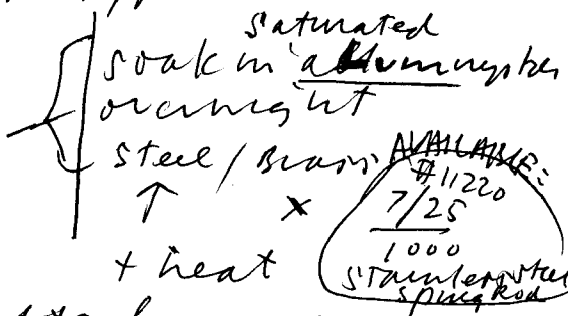 saturated
soak in alum
overnight
steel / Brass
AVAILABLE:
#11220
7/25
1000
+ heat
x
stainless steel
spring Rod